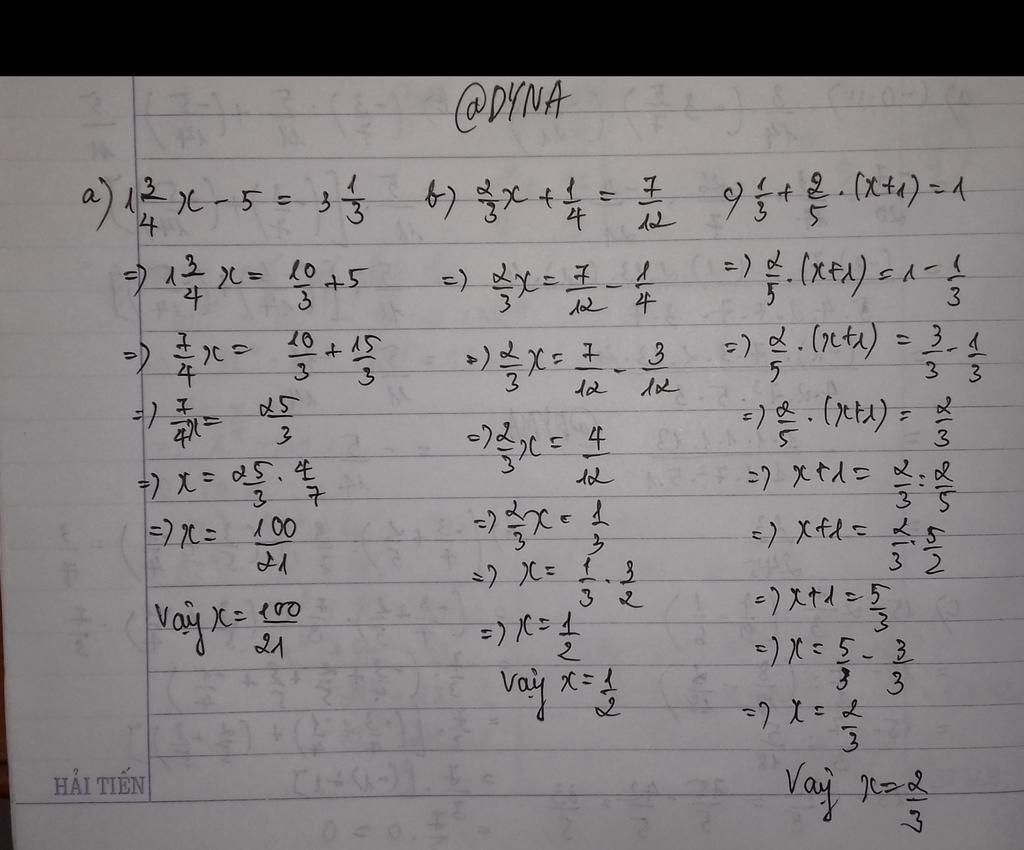 @DYNA
a) 1 3/4 x - 5 = 3 1/3
=) 1 3/4 x = 10/3 + 5
=) 7/4 x = 10/3 + 15/3
=) 7/4 x = 25/3
=) x = 25/3 . 4/7
=) x = 100/21
Vậy x = 100/21
b) 2/3 x + 1/4 = 7/12
=) 2/3 x = 7/12 - 1/4
=) 2/3 x = 7/12 - 3/12
=) 2/3 x = 4/12
=) 2/3 x = 1/3
=) x = 1/3 . 3/2
=) x = 1/2
Vậy x = 1/2
c) 1/3 + 2/5 . (x+1) = 1
=) 2/5 . (x+1) = 1 - 1/3
=) 2/5 . (x+1) = 3/3 - 1/3
=) 2/5 . (x+1) = 2/3
=) x+1 = 2/3 : 2/5
=) x+1 = 2/3 . 5/2
=) x+1 = 5/3
=) x = 5/3 - 3/3
=) x = 2/3
Vậy x = 2/3
HẢI TIẾN